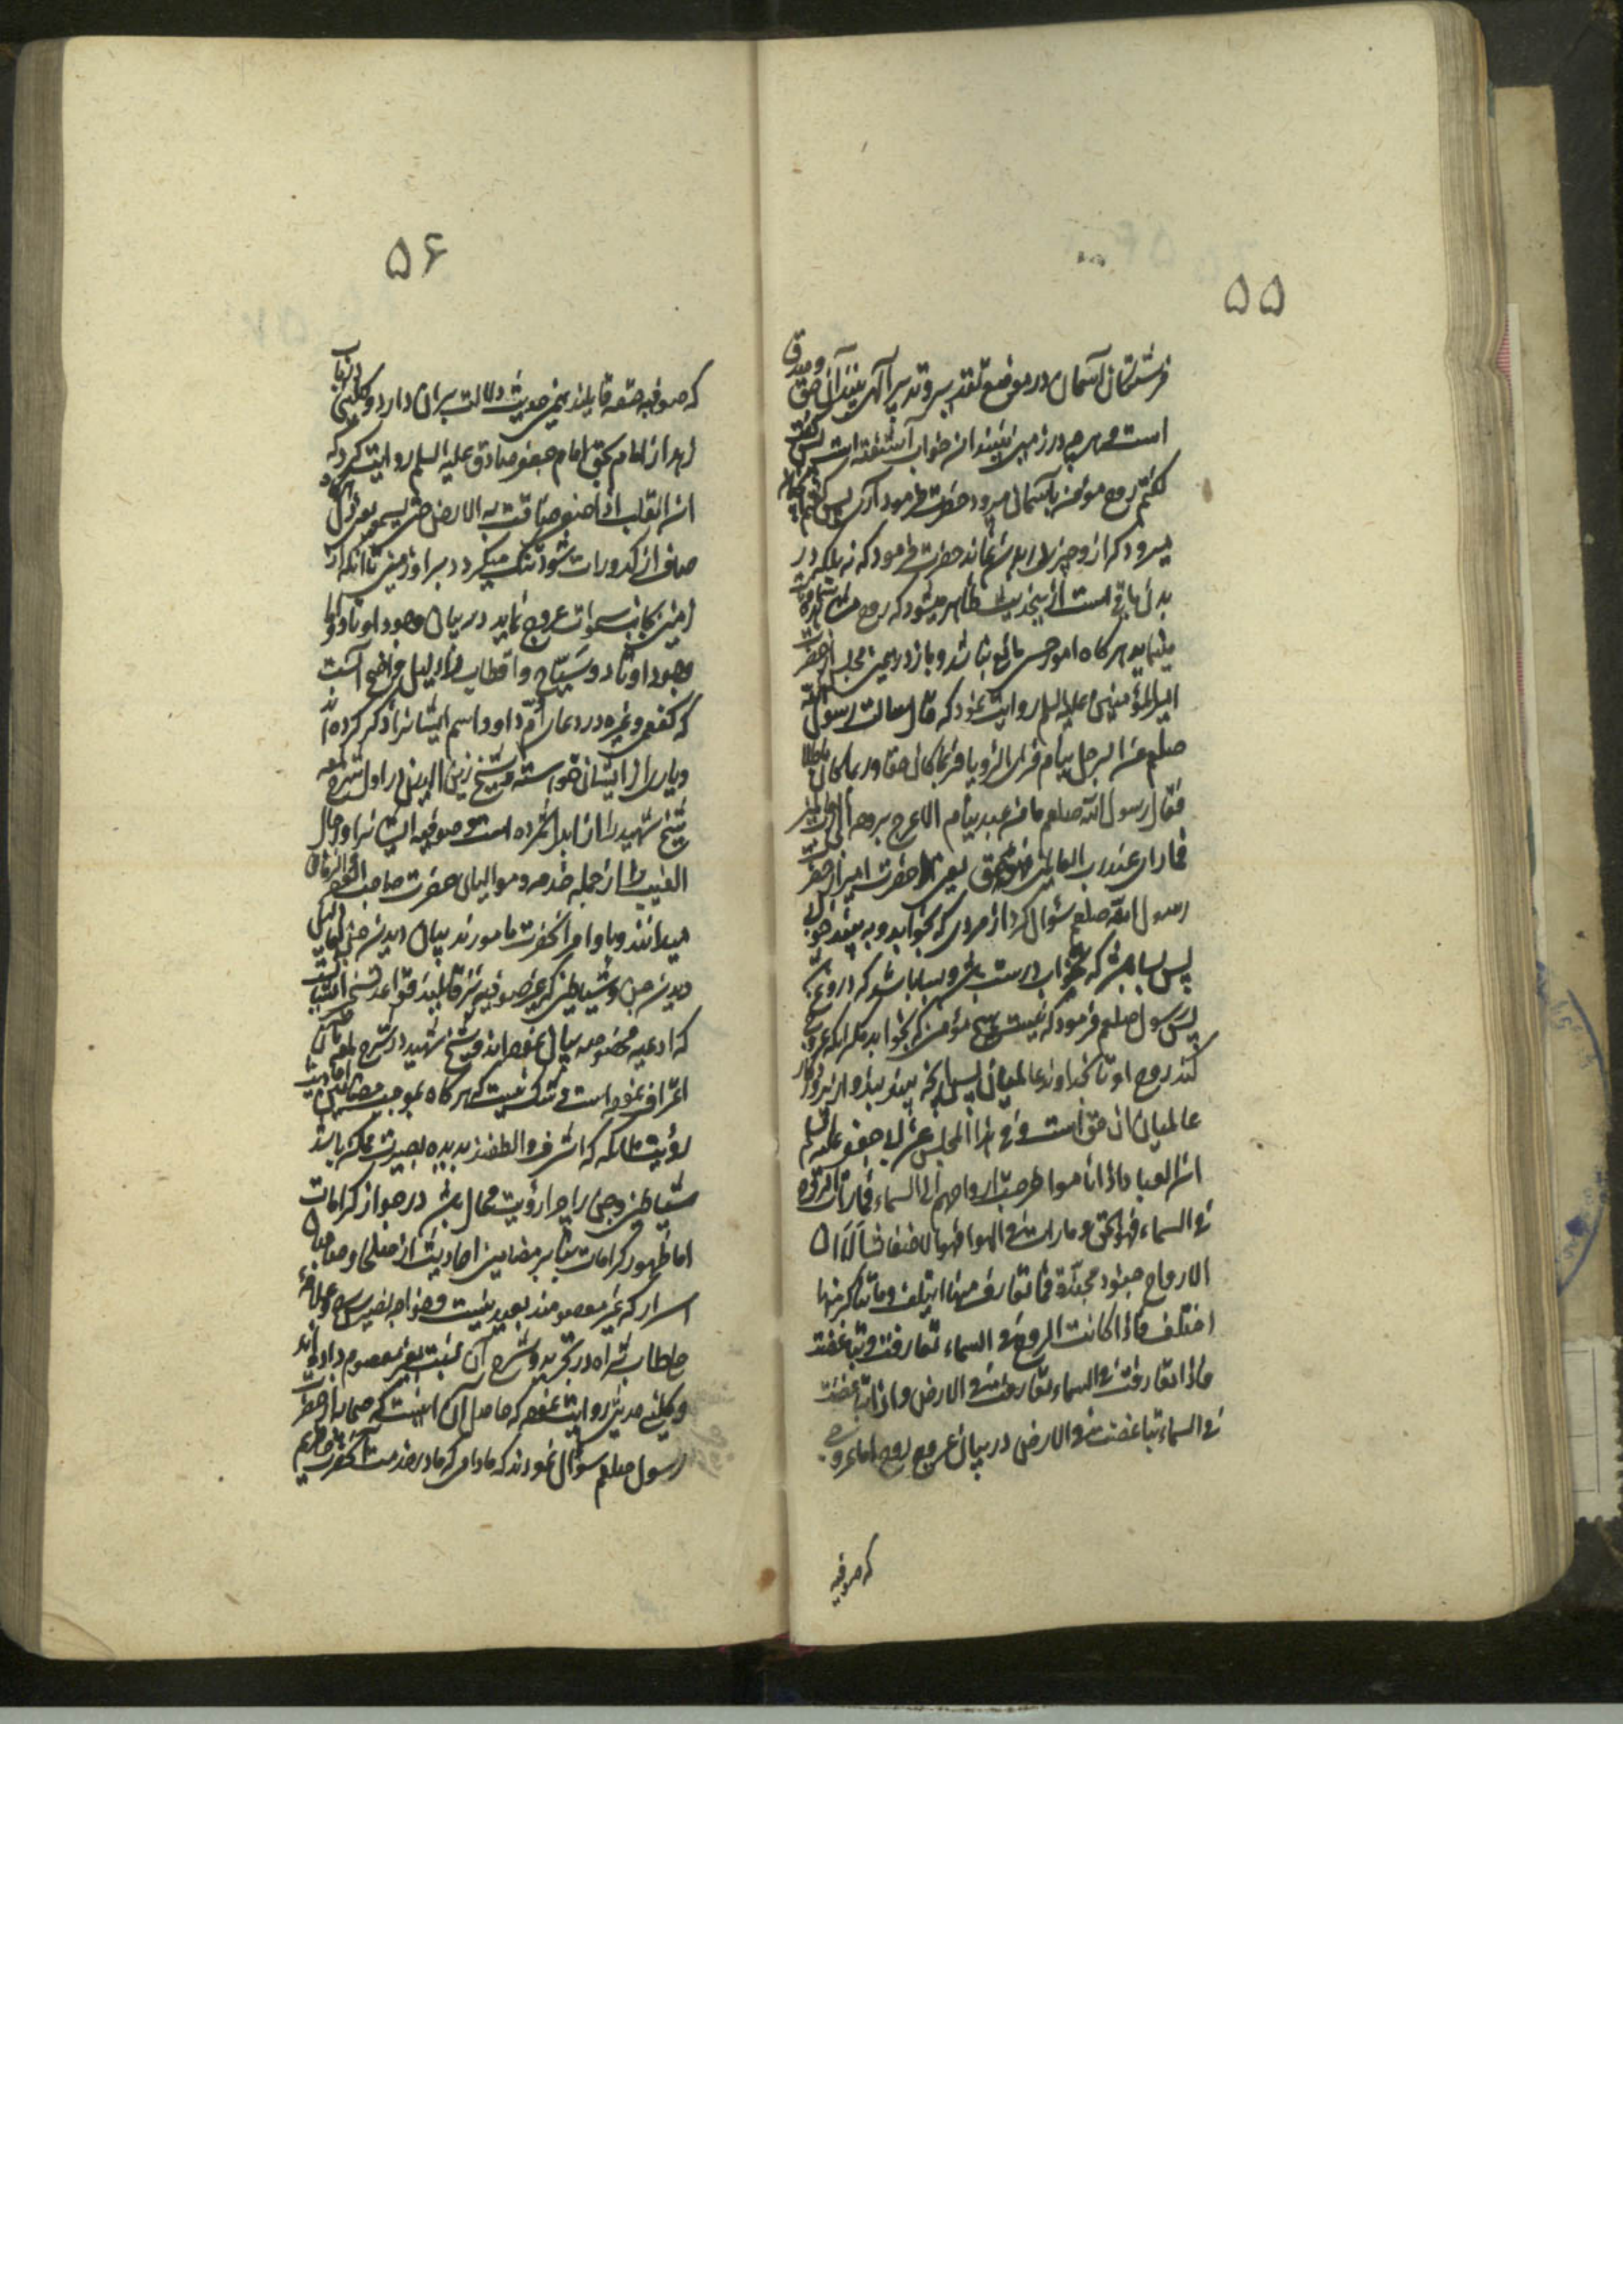 ۵۵
فرشتگان آسمان در موضع تقدیر و تدبیر آلهی بینند آن حق و صدق
است و هرچه در زمین بینند آن خواب آشفته است پس گفت
گفتم روح مؤمن بآسمان میرود حضرت فرمود آری پس گفتم
میرود که ازو چیزی در بدن نماند حضرت فرمود که نه بلکه در
بدن باقی است ازین حدیث ظاهر میشود که روح
مینماید هرگاه امور حسی مانع نباشد و باز در همین مجلس از حضرت
امیر المؤمنین علیه السلم روایت نموده که قال سالت رسول الله
صلعم عن الرجل ینام فیری الرؤیا فربما کان حقا و ربما کان باطلا
فقال رسول الله صلعم ما من عبد ینام الا عرج بروحه الی رب العالمین
فما رای عند رب العالمین فهو حق یعنی حضرت امیر از حضرت
رسول الله صلعم سؤال کرد از مردی که بخوابد و به بیند خوابی
پس بسا باشد که خواب درست باشد و بسا باشد که دروغ
پس رسول صلعم فرمود که نیست هیچ مؤمن که بخوابد مگر آنکه عروج
کند روح او تا خداوند عالمیان پس آنچه بیند نزد پروردگار
عالمیان آن حق است و فی هذا المجلس عن ابی جعفر علیه السلم
ان العباد اذا ناموا خرجت ارواحهم الی السماء فما رات الروح
فی السماء فهو الحق و ما رات فی الهوا فهو الاضغاث الا و ان
الارواح جنود مجندة فما تعارف منها ایتلف و ما تناکر منها
اختلف فاذا کانت الروح فی السماء تعارفت و تباغضت
فاذا تعارفت فی السماء تعارفت فی الارض و اذا تباغضت
فی السماء تباغضت فی الارض در بیان عروج روح اما عروجی
که صوفیه
۵۶
که صوفیه حقه قایلند همین حدیث دلالت بر آن دارد و کلینی در باب
زهد از امام بحق امام جعفر صادق علیه السلم روایت کرده که
ان القلب اذا صفی ضاقت به الارض حتی یسمو یعنی دل هرگاه
صاف از کدورات شود تنگ میگردد بر او زمین تا آنکه از
زمین بجانب سموات عروج نماید در بیان وجود اوتاد و اما
وجود اوتاد و سیّاح و اقطاب دلیل واضح آنست
که کفعمی و غیره در دعای ام داود اسم ایشانرا ذکر کرده اند
و یاری از ایشان خواسته و شیخ زین الدین در اول شرح لمعه
شیخ شهید را از ابدال شمرده است و صوفیه ایشانرا رجال
الغیب و از جمله خدمه و موالیان حضرت صاحب العصر و الزمان
میدانند و باوامر آنحضرت مامورند بیان دیدن جن اما
دیدن جن و شیاطین که غیر صوفیه نیز قایلند
که ادعیه مخصوصه بیان نموده اند و شیخ شهید در شرح لمعه بآن
اعتراف نموده است و شک نیست که هرگاه بموجب مضامین احادیث
رؤیت ملائکه که اشرف و الطفند بدیده بصیرت ممکن باشد
شیاطین و جن را چرا رؤیت محال باشد در جواز کرامات
اما ظهور کرامات بنابر مضامین احادیث از صلحا و صاحبان
اسرار که غیر معصومند بعید نیست و خواجه نصیر و علامه
طاب ثراه در تجرید و شرح آن نسبت بغیر معصوم داده اند
و کلینی حدیثی روایت نموده که حاصل آن اینست که صحابه از حضرت
رسول صلعم سؤال نمودند که مادامی که ما در خدمت آنحضرت